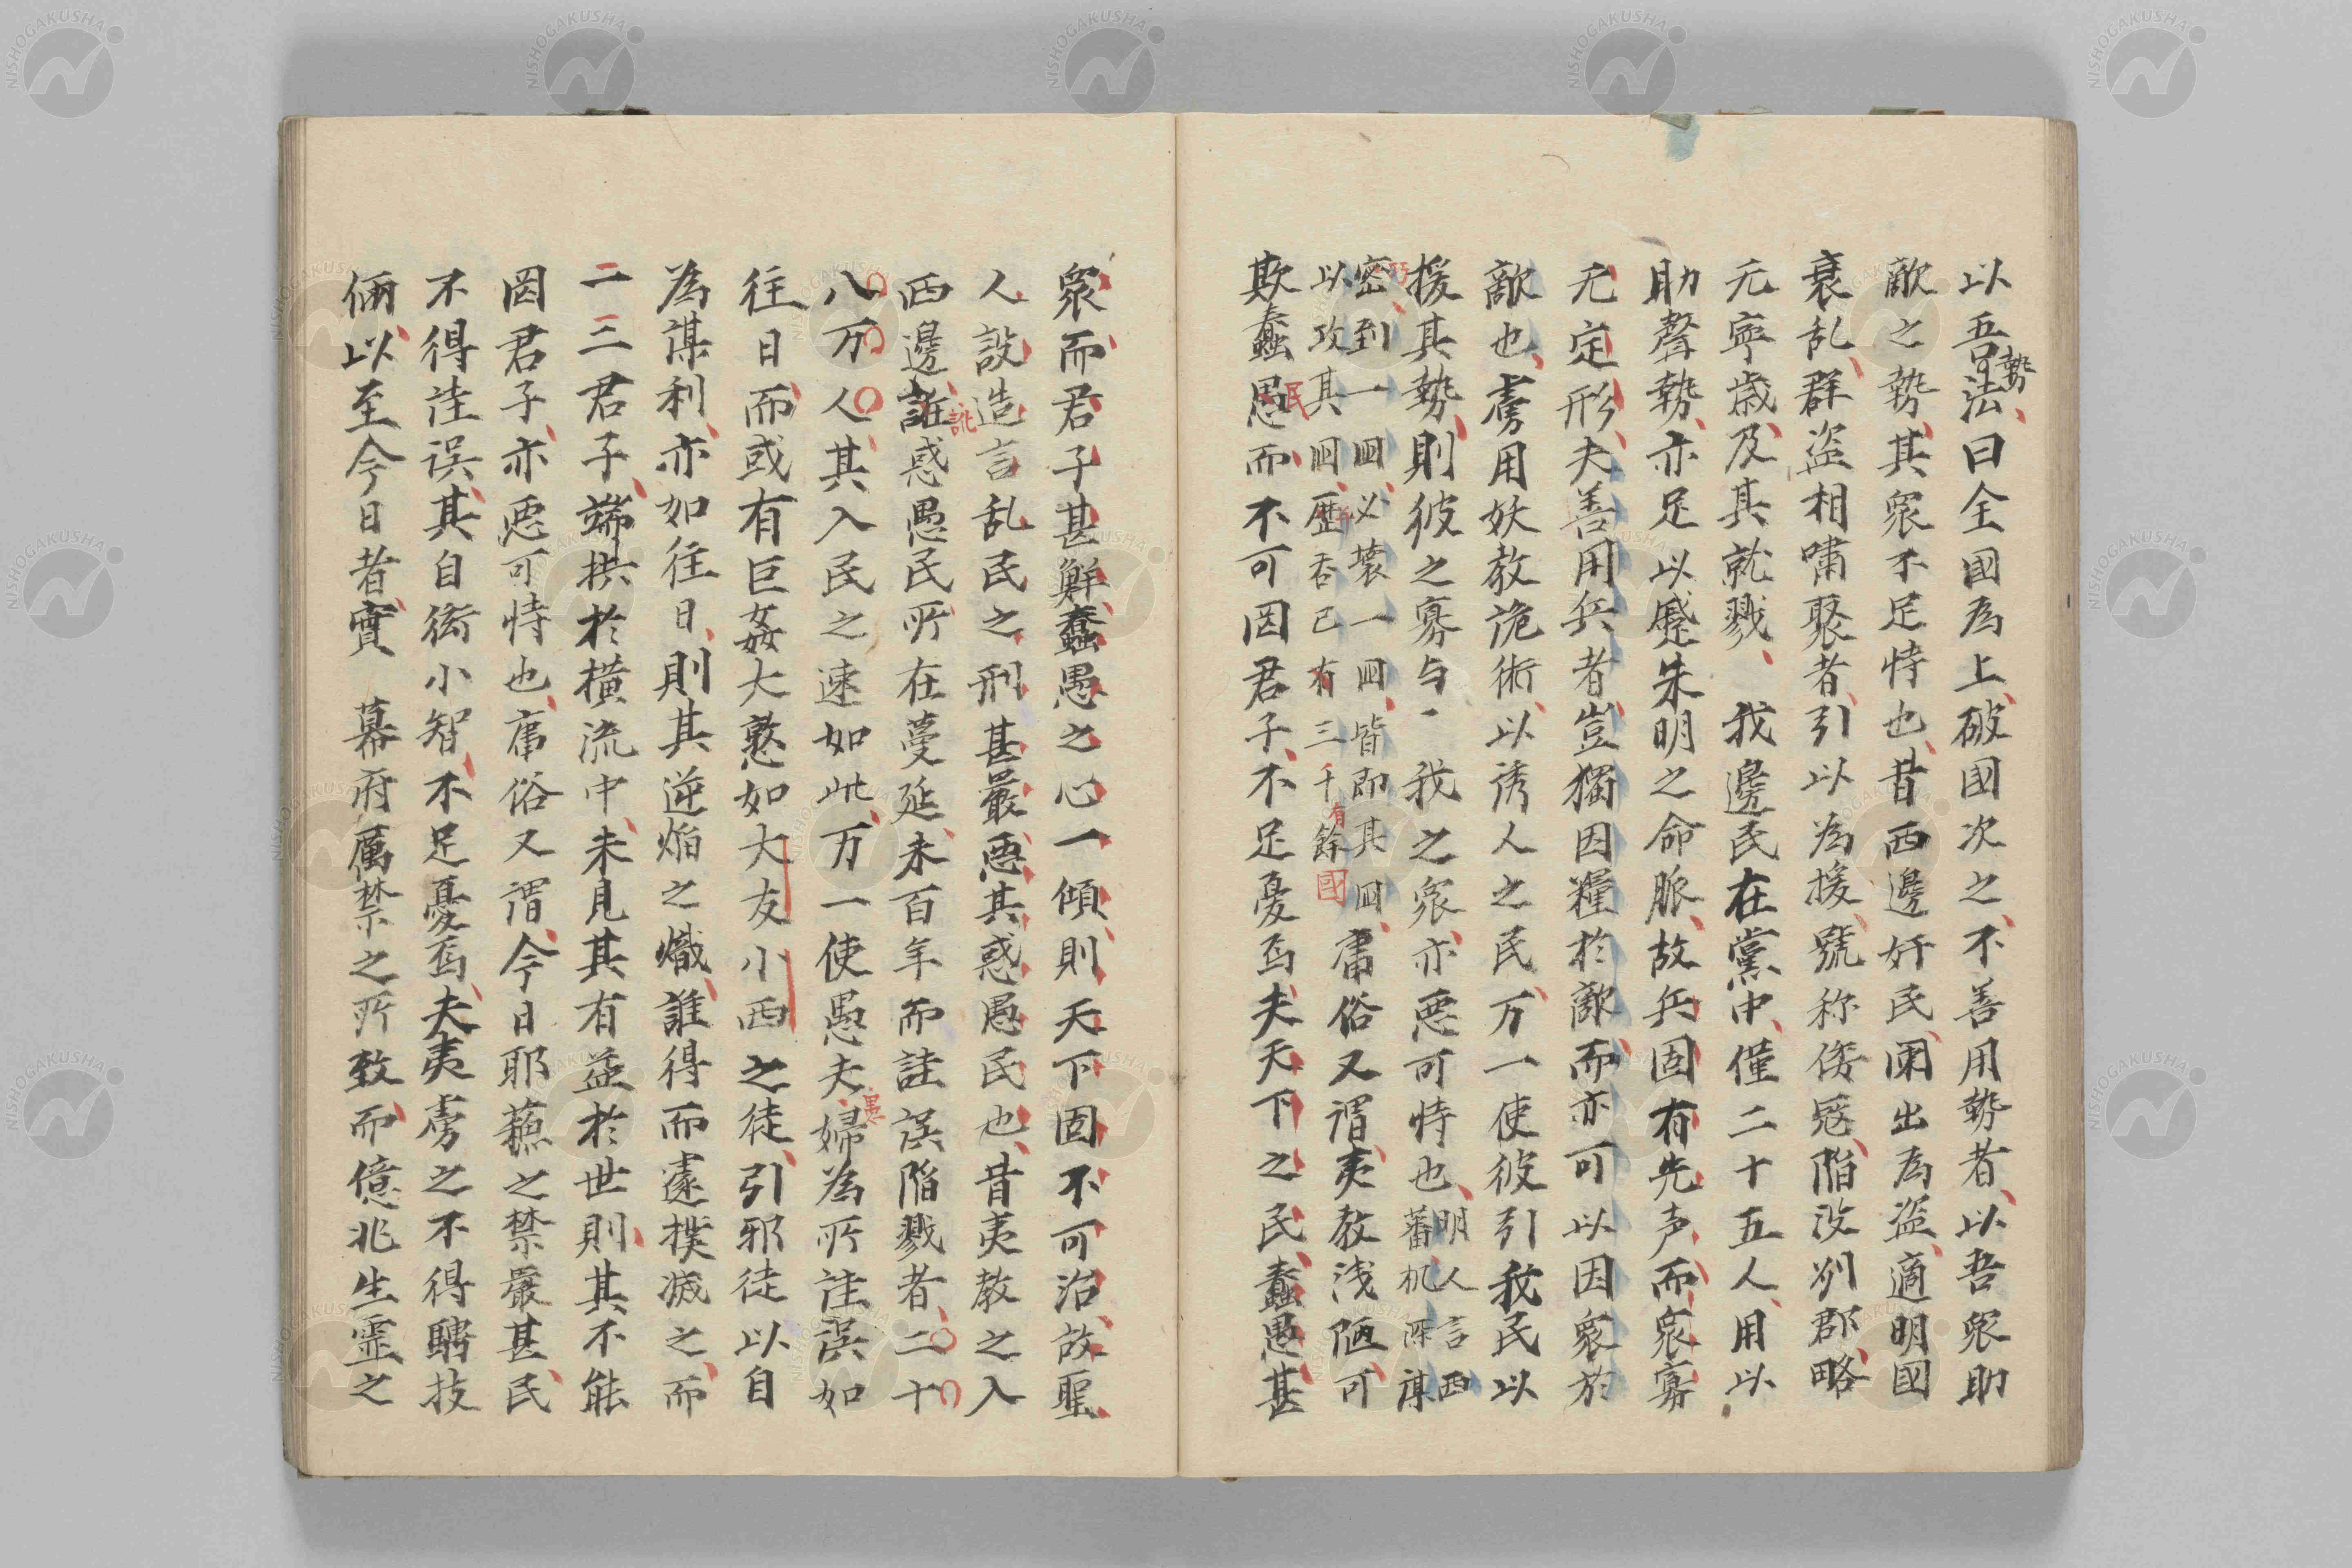 以吾法曰全國為上破國次之不善用勢者以吾衆助
勢
敵之勢其衆不足恃也昔西邊奸民闌出為盗適明國
衰乱群盗相嘯聚者引以為援號称倭冦陥没州郡略
无寧歳及其就戮 我邊民在黨中僅二十五人用以
助聲勢亦足以蹙朱明之命脈故兵固有先声而衆寡
无定形夫善用兵者豈獨因糧於敵而亦可以因衆於
敵也虜用妖教詭術以誘人之民万一使彼引我民以
援其勢則彼之寡与我之衆亦悪可恃也明人言西
蕃机深謀
密到一囬必壊一囬皆即其囬
以攻其囬歴吞已有三千餘
有
國
庸俗又謂夷教浅陋可
欺蠢愚而不可因君子不足憂焉夫天下之民蠢愚甚
民
衆而君子甚鮮蠢愚之心一傾則天下固不可治故聖
人設造言乱民之刑甚嚴悪其惑愚民也昔夷教之入
西邊誑惑愚民所在蔓延未百年而詿誤陥戮者二十
訛
八万人其入民之速如此万一使愚夫婦為所詿誤如
愚
往日而或有巨姦大憝如大友小西之徒引邪徒以自
為謀利亦如往日則其逆焔之熾誰得而遽撲滅之而
二三君子端拱於横流中未見其有益於世則其不能
罔君子亦悪可恃也庸俗又謂今日耶蘓之禁嚴甚民
不得詿誤其自衒小智不足憂焉夫夷虜之不得騁技
倆以至今日者實 幕府厲禁之所致而億兆生霊之
NISHOGAKUSHA